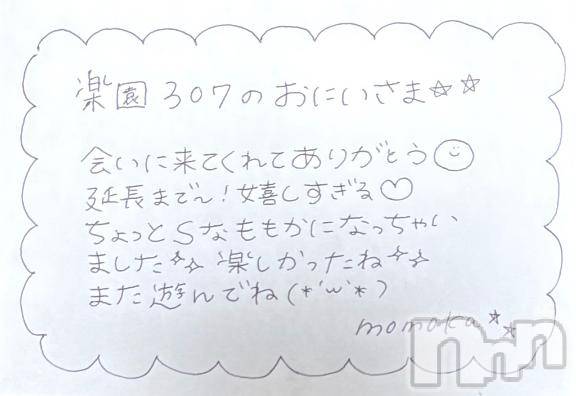 楽園307のおにいさま☆☆
会いに来てくれてありがとう
延長までん!嬉しすぎる♡
ちょっとSなももかになっちゃい
ました☆☆ 楽しかったね☆☆
また遊んでね(*´ω`*)
momoka☆☆
nnn